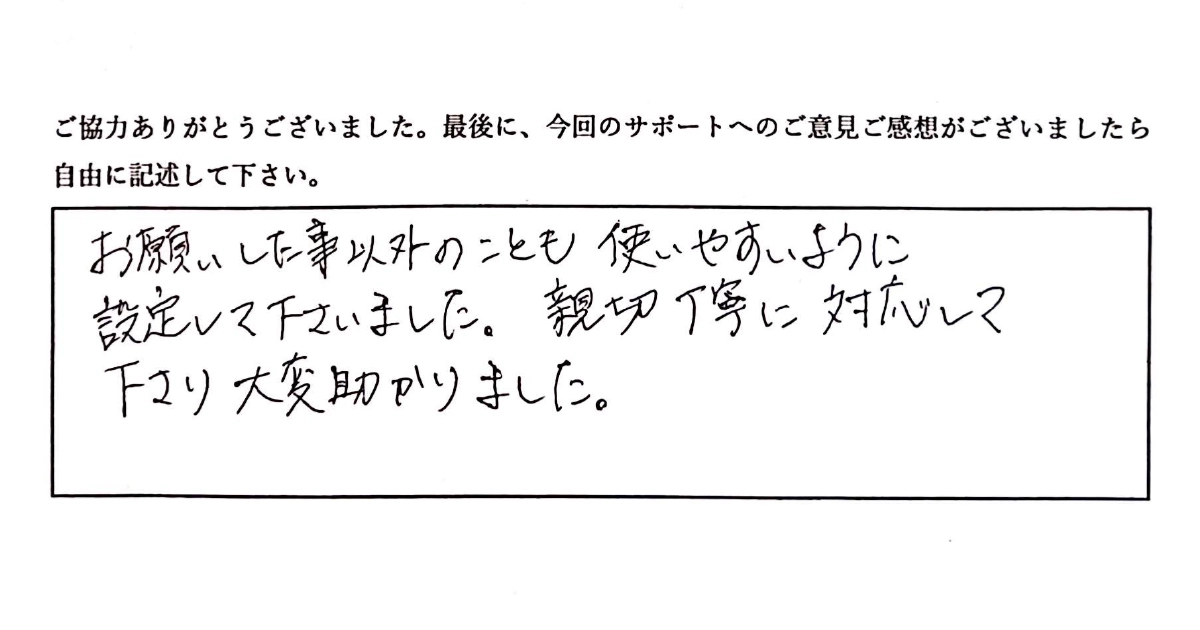 ご協力ありがとうございました。最後に、今回のサポートへのご意見ご感想がございましたら
自由に記述して下さい。
お願いした事以外のことも使いやすいように
設定して下さいました。親切丁寧に対応して
下さり大変助かりました。